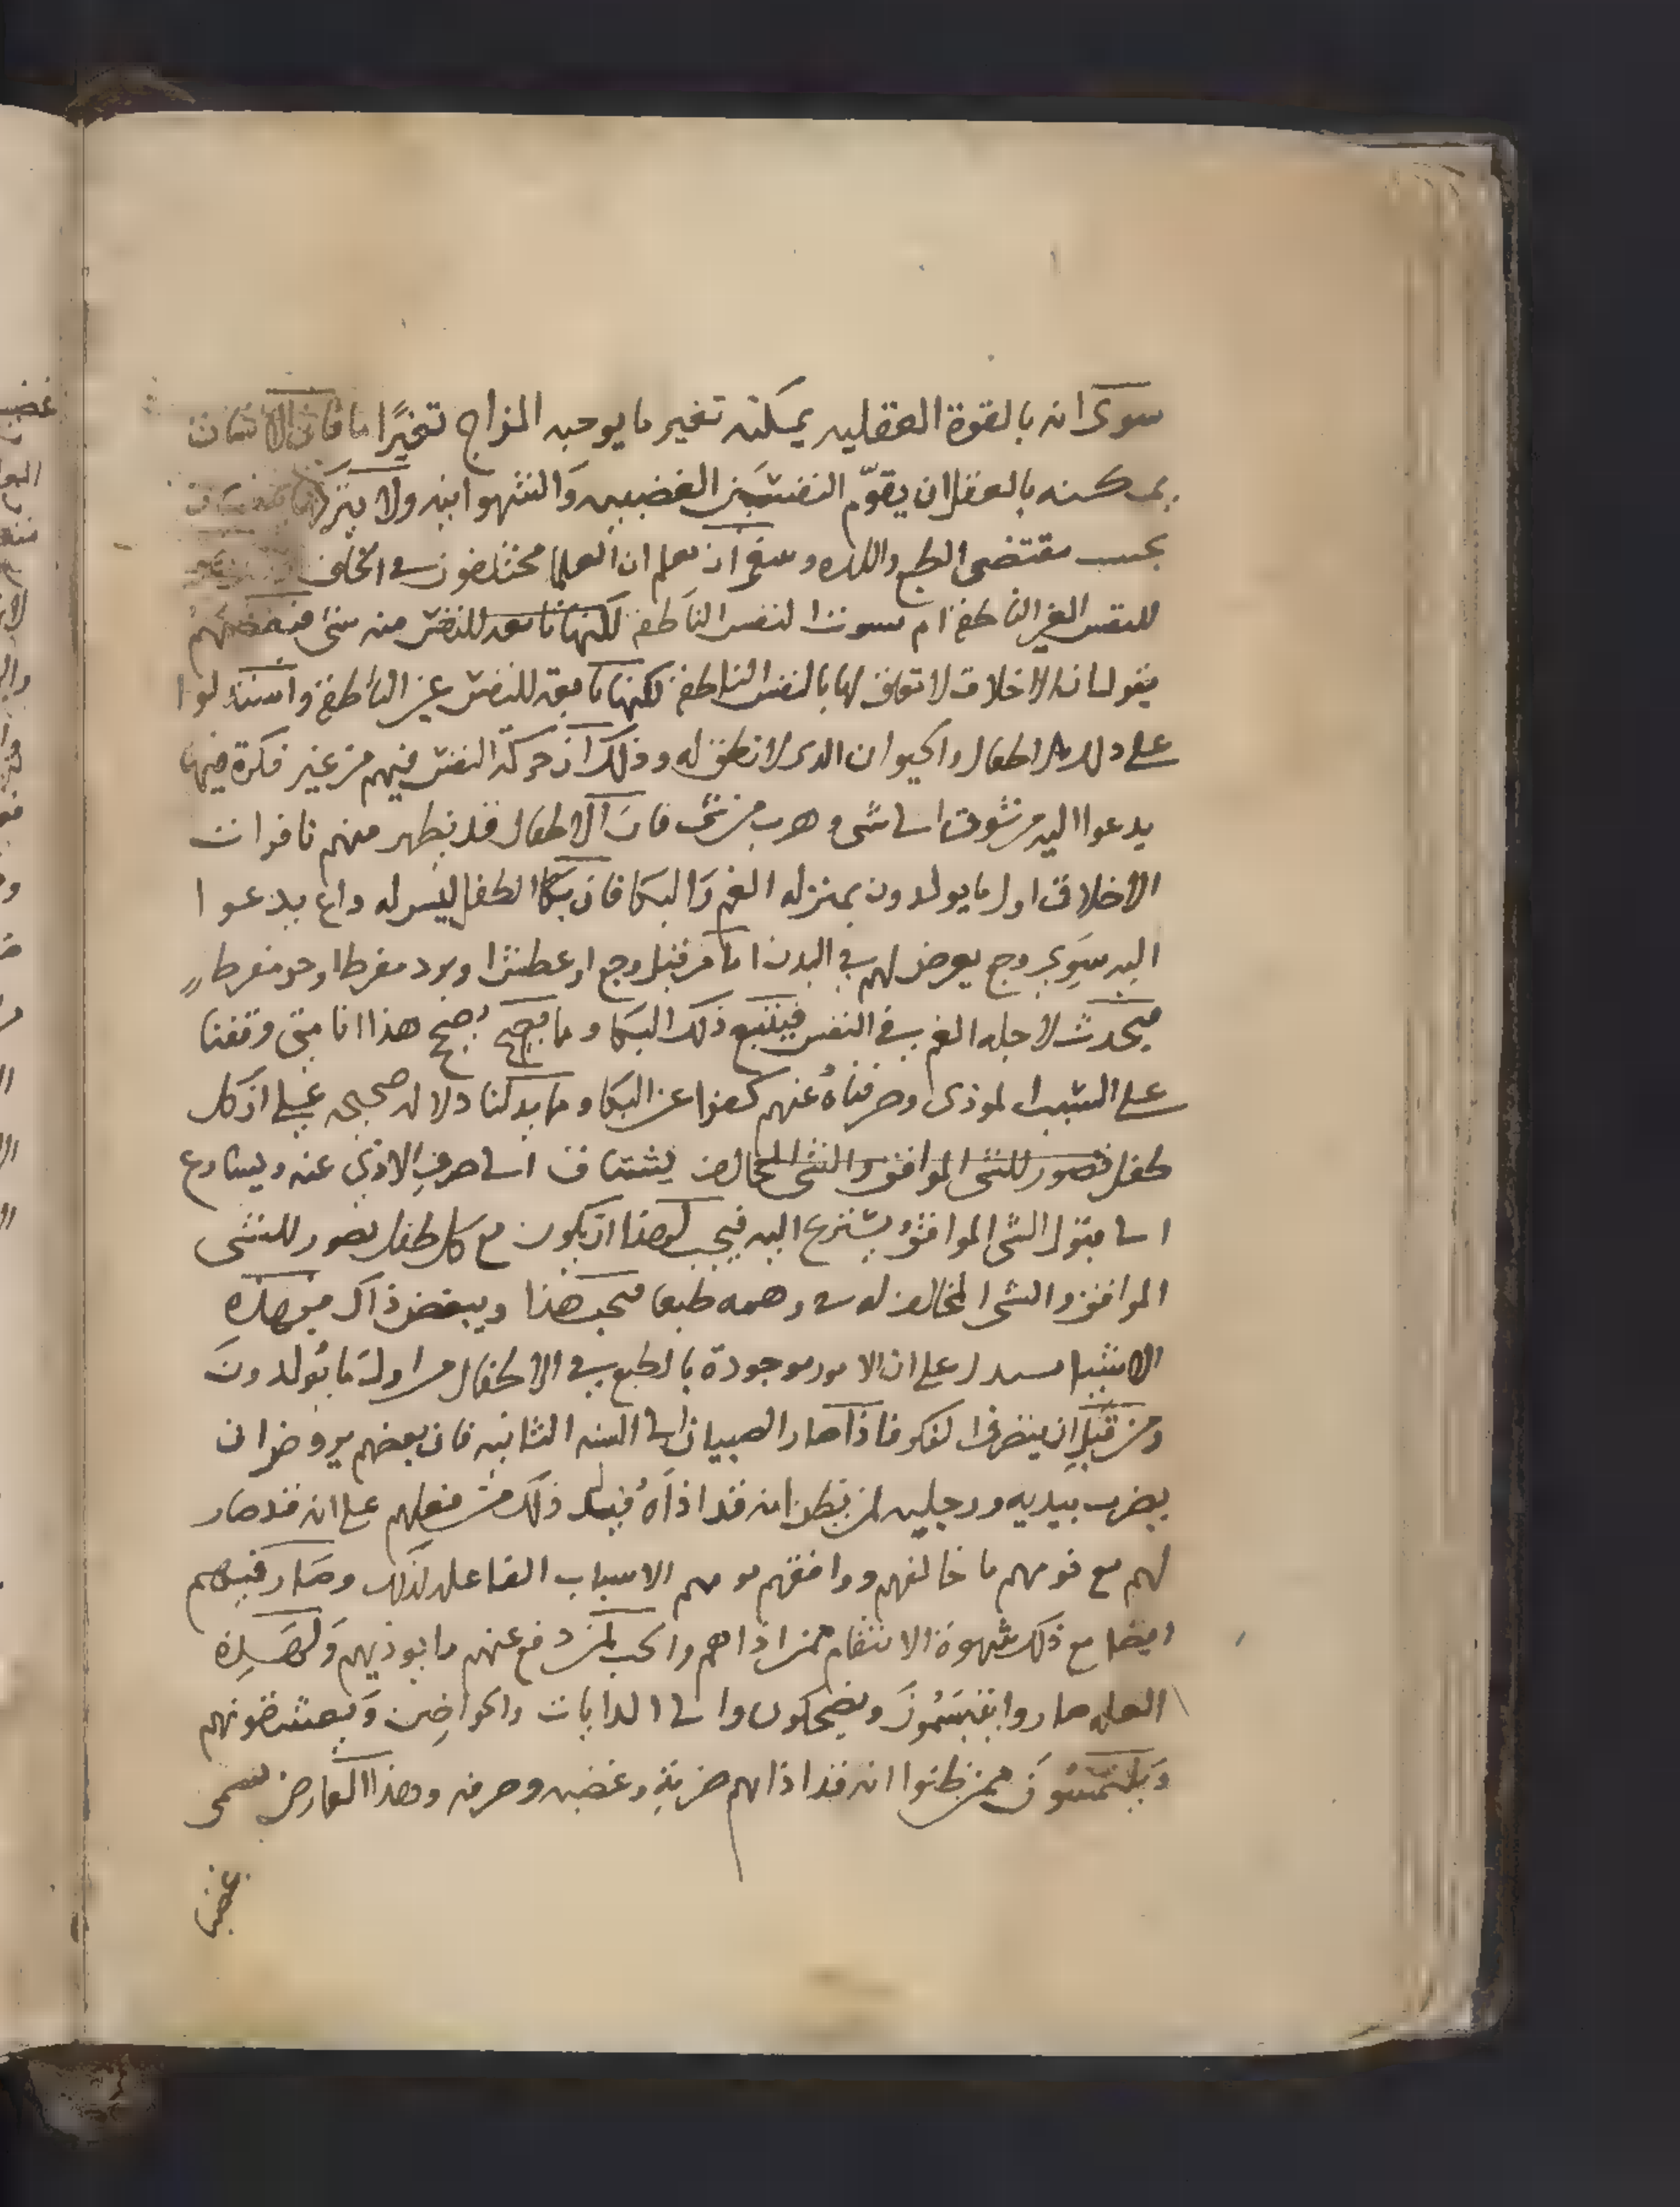 سوى انه بالقوة العقليه يمكنه تغير ما يوجبه المزاج تغيرًا ما فان الانسان
يمكنه بالعقل ان يقوّم النفسين الغضبيه والشهوانيه ولا يتركهما
بحسب مقتضى الطبع واللذه وينبغي ان نعلم ان العلما مختلفون في الخلق
للنفس الغير الناطقه ام للنفس الناطقه لكنها تابعه للنفس منه شئ فبعضهم
يقول ان الاخلاق لا تعلق لها بالنفس الناطقه لكنها تابعه للنفس غير الناطقه واستدلوا
على ذلك بالاطفال والحيوان الذى لا نطق له وذلك ان حركة النفس فيهم من غير فكرة فيما
يدعوا اليه من شوق الى شئ وهرب من شئ فان الاطفال قد يظهر منهم نافرات
الاخلاق اول ما يولدون بمنزله الغم والبكا فان بكا الطفل ليس له داع يدعوا
اليه سوى وجع يعرض لهم في البدن اما من قبل وجع او عطش او برد مفرط او حر مفرط
فيحدث لاجله الغم في النفس فيتبع ذلك البكا ومما يصحح هذا انا متى وقفنا
على السبب الموذى وصرفناه عنهم كفوا عن البكا ومما يدلنا دلاله صحيحه على ان كل
طفل تصور للشئ الموافق والشئ المخالف يشتاق الى صرف الاذى عنه ويسارع
الى قبول الشئ الموافق ويتنزع اليه فيجب لهذا ان يكون مع كل طفل تصور للشئ
الموافق والشئ المخالف له في وهمه طبعا فيحب هذا ويبغض ذاك فهذه
الاشيا يستدل على ان الامور موجودة بالطبع في الاطفال من اول ما يولدون
ومن قبل ان يتصرف الفكر فاذا صار الصبيان الى السنه الثانيه فان بعضهم يروض ان
يضرب بيديه ورجليه لمن يظن انه قد اذاه فيدل ذلك من فعلهم على انه قد صار
لهم مع توهم ما خالفهم ووافقهم توهم الاسباب الفاعله لذلك وصار فيهم
ايضا مع ذلك شهوة الانتقام ممن اذاهم والحب لمن دفع عنهم ما يوذيهم ولهذه
العله صاروا يتبسمون ويضحكون الى الدايات والحواضن ويعشقونهم
ويلتمسون ممن ظنوا انه قد اذاهم ضربه وغضبه وحرقه وهذا العارض يسمى
غضبا